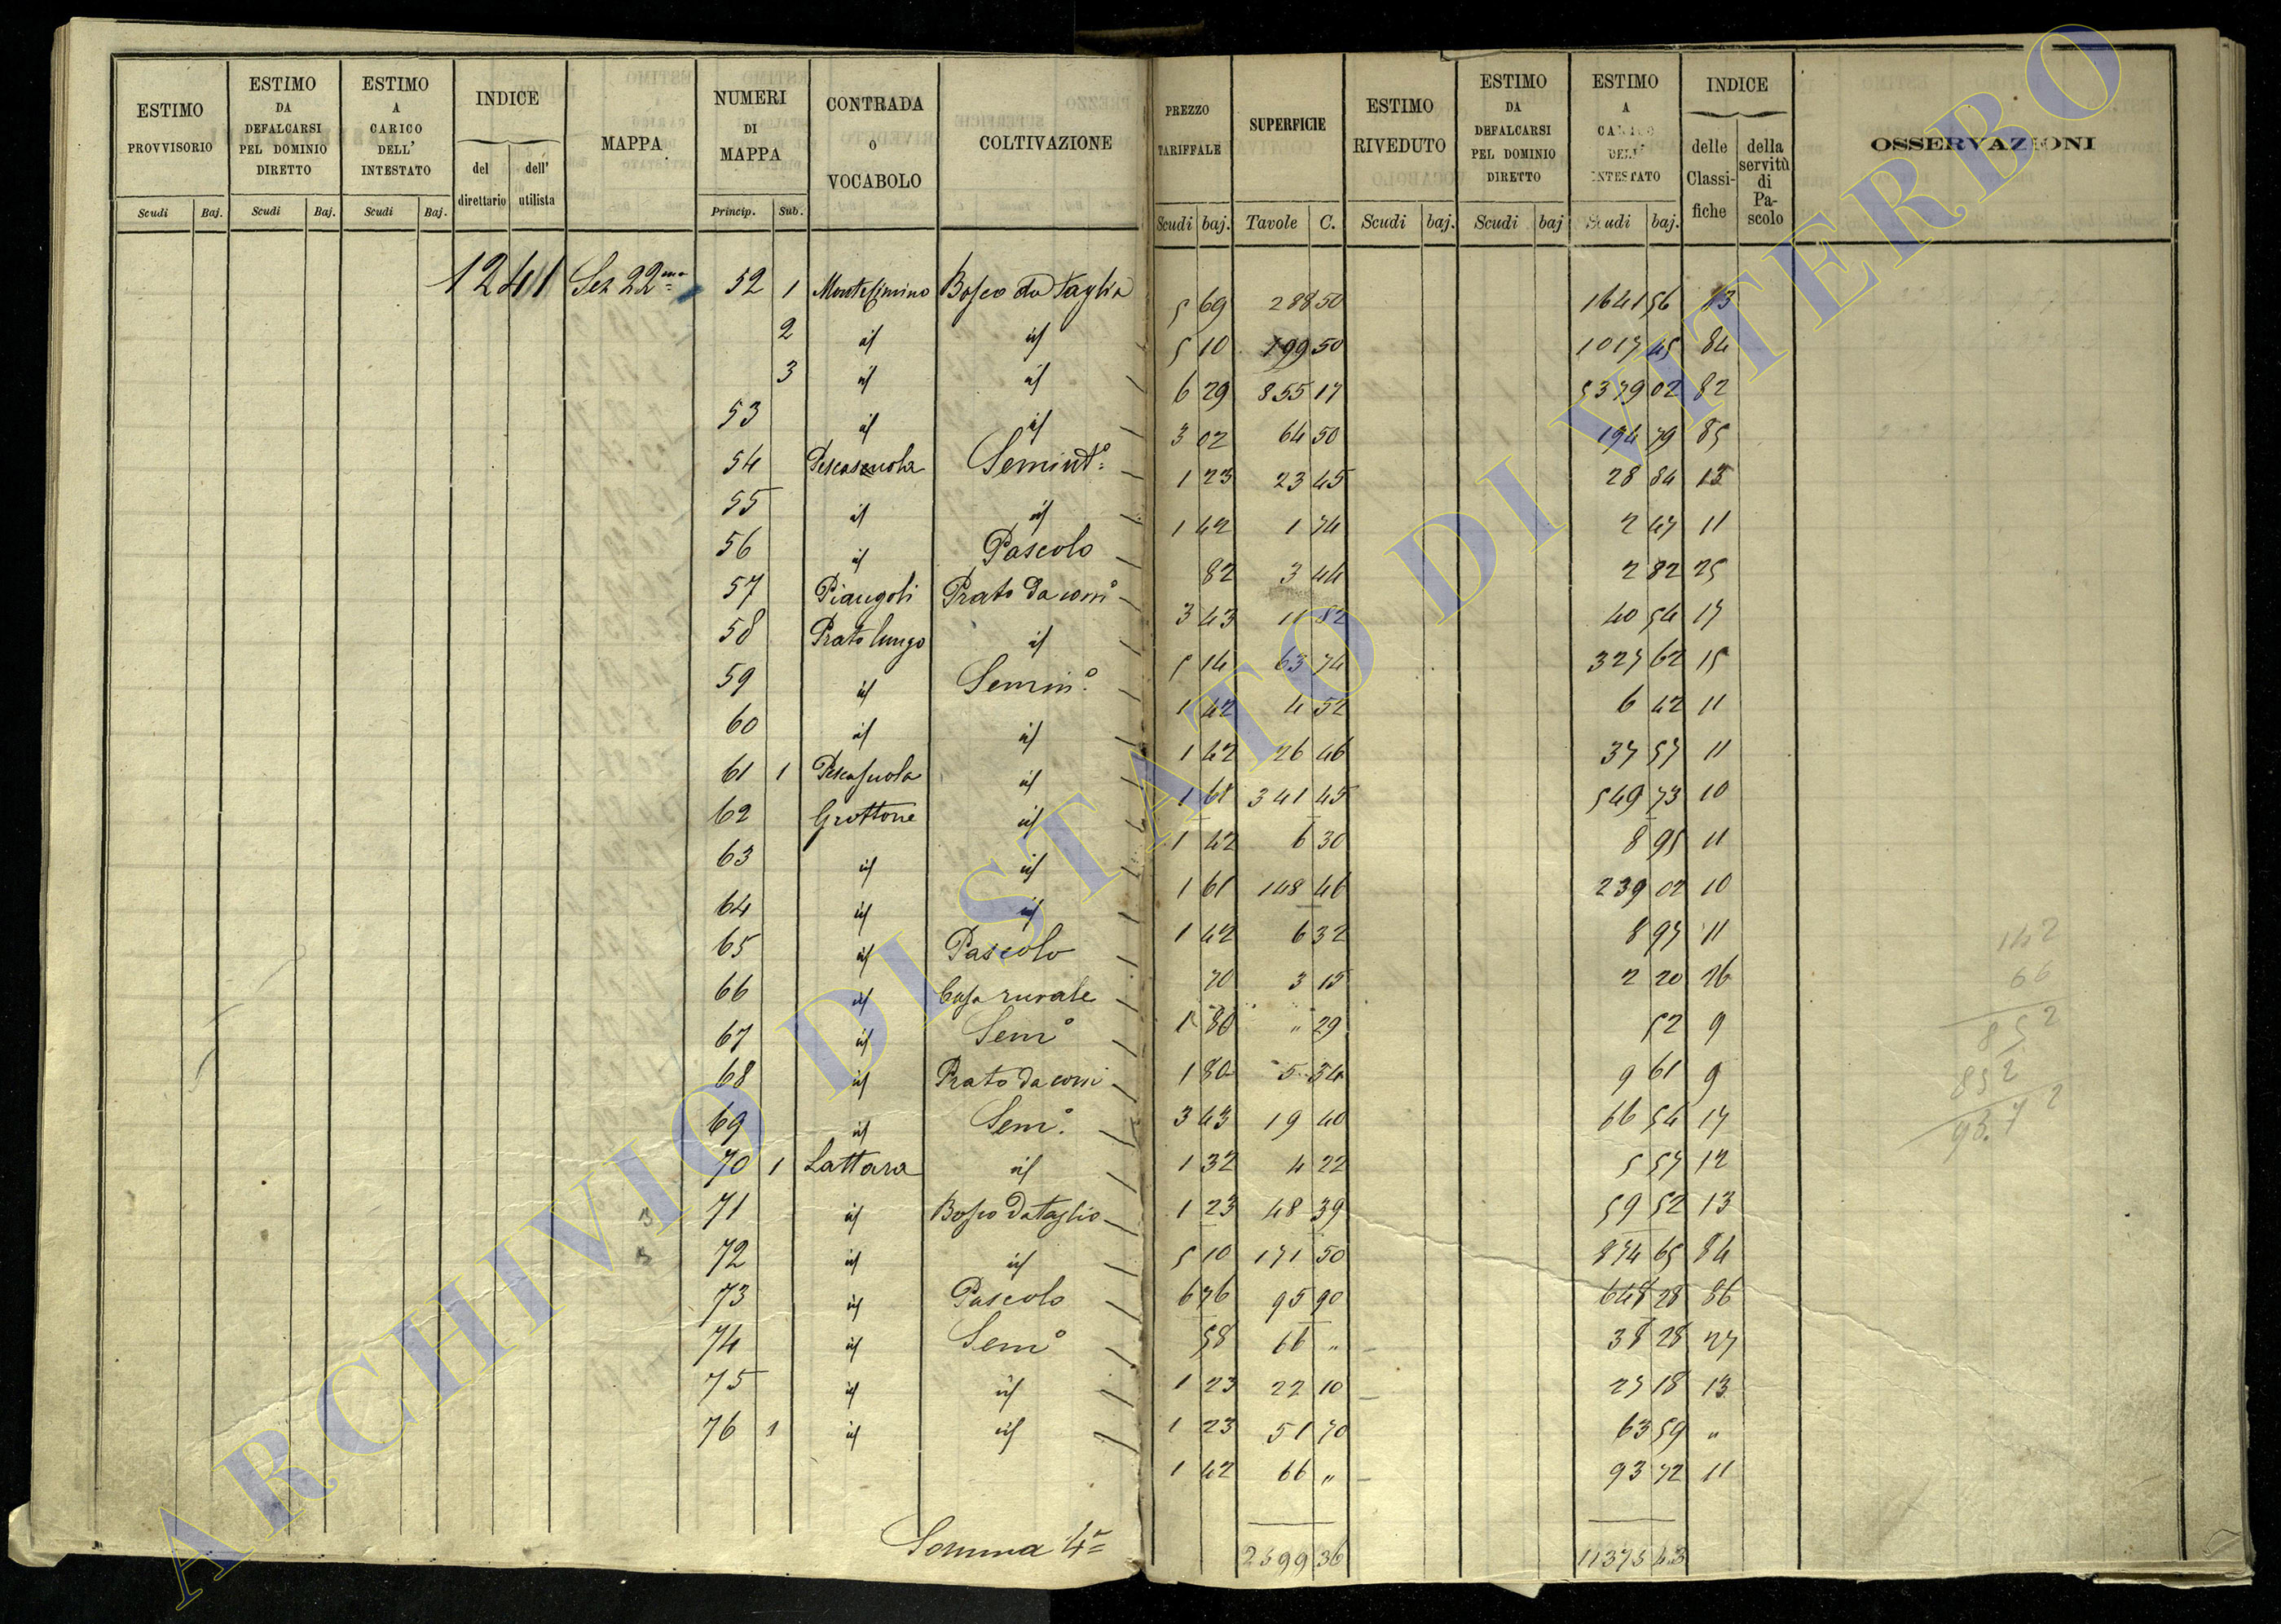 ESTIMO PROVVISORIO
ESTIMO DA DEFALCARSI PEL DOMINIO DIRETTO
ESTIMO A CARICO DELL' INTESTATO
INDICE
del direttario
dell' utilista
MAPPA
NUMERI DI MAPPA
CONTRADA O VOCABOLO
COLTIVAZIONE
PREZZO TARIFFALE
SUPERFICIE
ESTIMO RIVEDUTO
ESTIMO DA DEFALCARSI PEL DOMINIO DIRETTO
ESTIMO A CARICO DELL' INTESTATO
INDICE
delle Classifiche
della servitù di Pascolo
OSSERVAZIONI
Scudi Baj. Scudi Baj. Scudi Baj. Princip. Sub. Scudi baj. Tavole C. Scudi baj. Scudi baj Scudi baj.
1241 Sez 22ma 52 1 Montesimino Bosco da Taglia 5 69 288 50 1641 56 83
2 id id 5 10 199 50 1017 45 84
3 id id 6 29 855 17 5379 02 82
53 id id 3 02 64 50 194 79 85
54 Pescasuola Semintº 1 23 23 45 28 84 13
55 id id 1 42 1 74 2 47 11
56 id id Pascolo 82 3 44 2 82 25
57 Piangoli Prato da comº 3 43 11 82 40 54 17
58 Prato lungo id 5 14 63 74 327 62 15
59 id Seminº 1 42 4 52 6 42 11
60 id id 1 42 26 46 37 57 11
61 1 Pescasuola id 1 61 341 45 549 73 10
62 Grottone id 1 42 6 30 8 95 11
63 id id 1 61 148 46 239 02 10
64 id id 1 42 6 32 8 97 11
65 id Pascolo 70 3 15 2 20 26
66 id Casa rurale 1 80 " 29 52 9
67 id Semº 1 80 5 34 9 61 9
68 id Prato da com 3 43 19 40 66 54 17
69 id Semº 1 32 4 22 5 57 12
70 1 Lattara id 1 23 48 39 59 52 13
71 id Bosco da taglio 5 10 171 50 874 65 84
72 id id 6 76 95 90 648 28 86
73 id Pascolo 58 66 " 38 28 27
74 id Semº 1 23 22 10 27 18 13
75 id id 1 23 51 70 63 59 "
76 1 id id 1 42 66 " 93 72 11
Somma 4a 2599 36 11375 43
142
66
852
852
93.72
ARCHIVIO DI STATO DI VITERBO